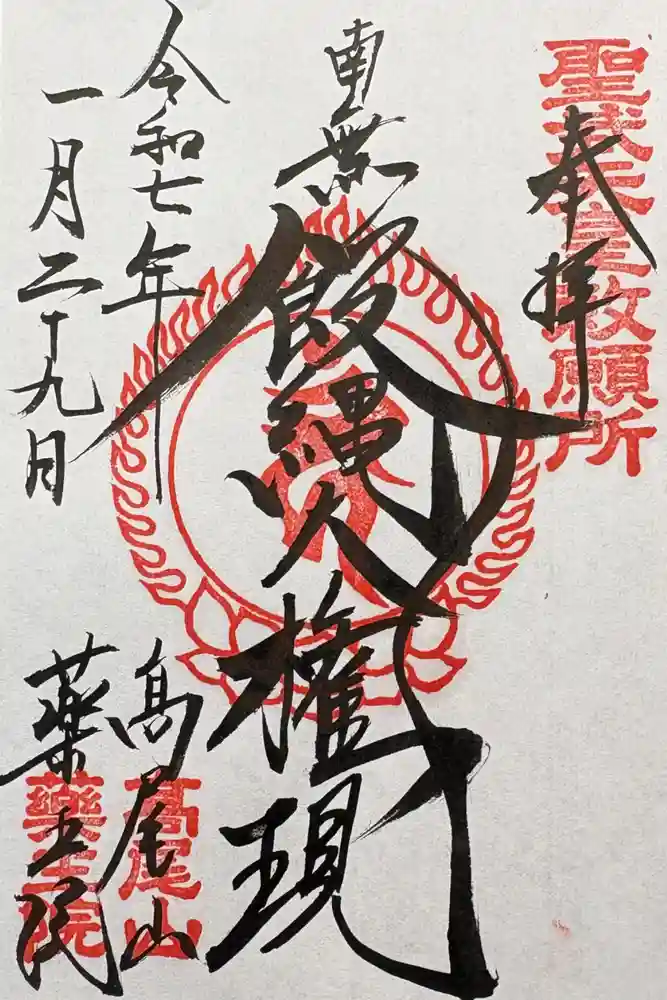 奉拝
聖武天皇敕願所
南無飯縄大権現
令和七年
一月二十九日
高尾山
薬王院
高尾山
藥王院